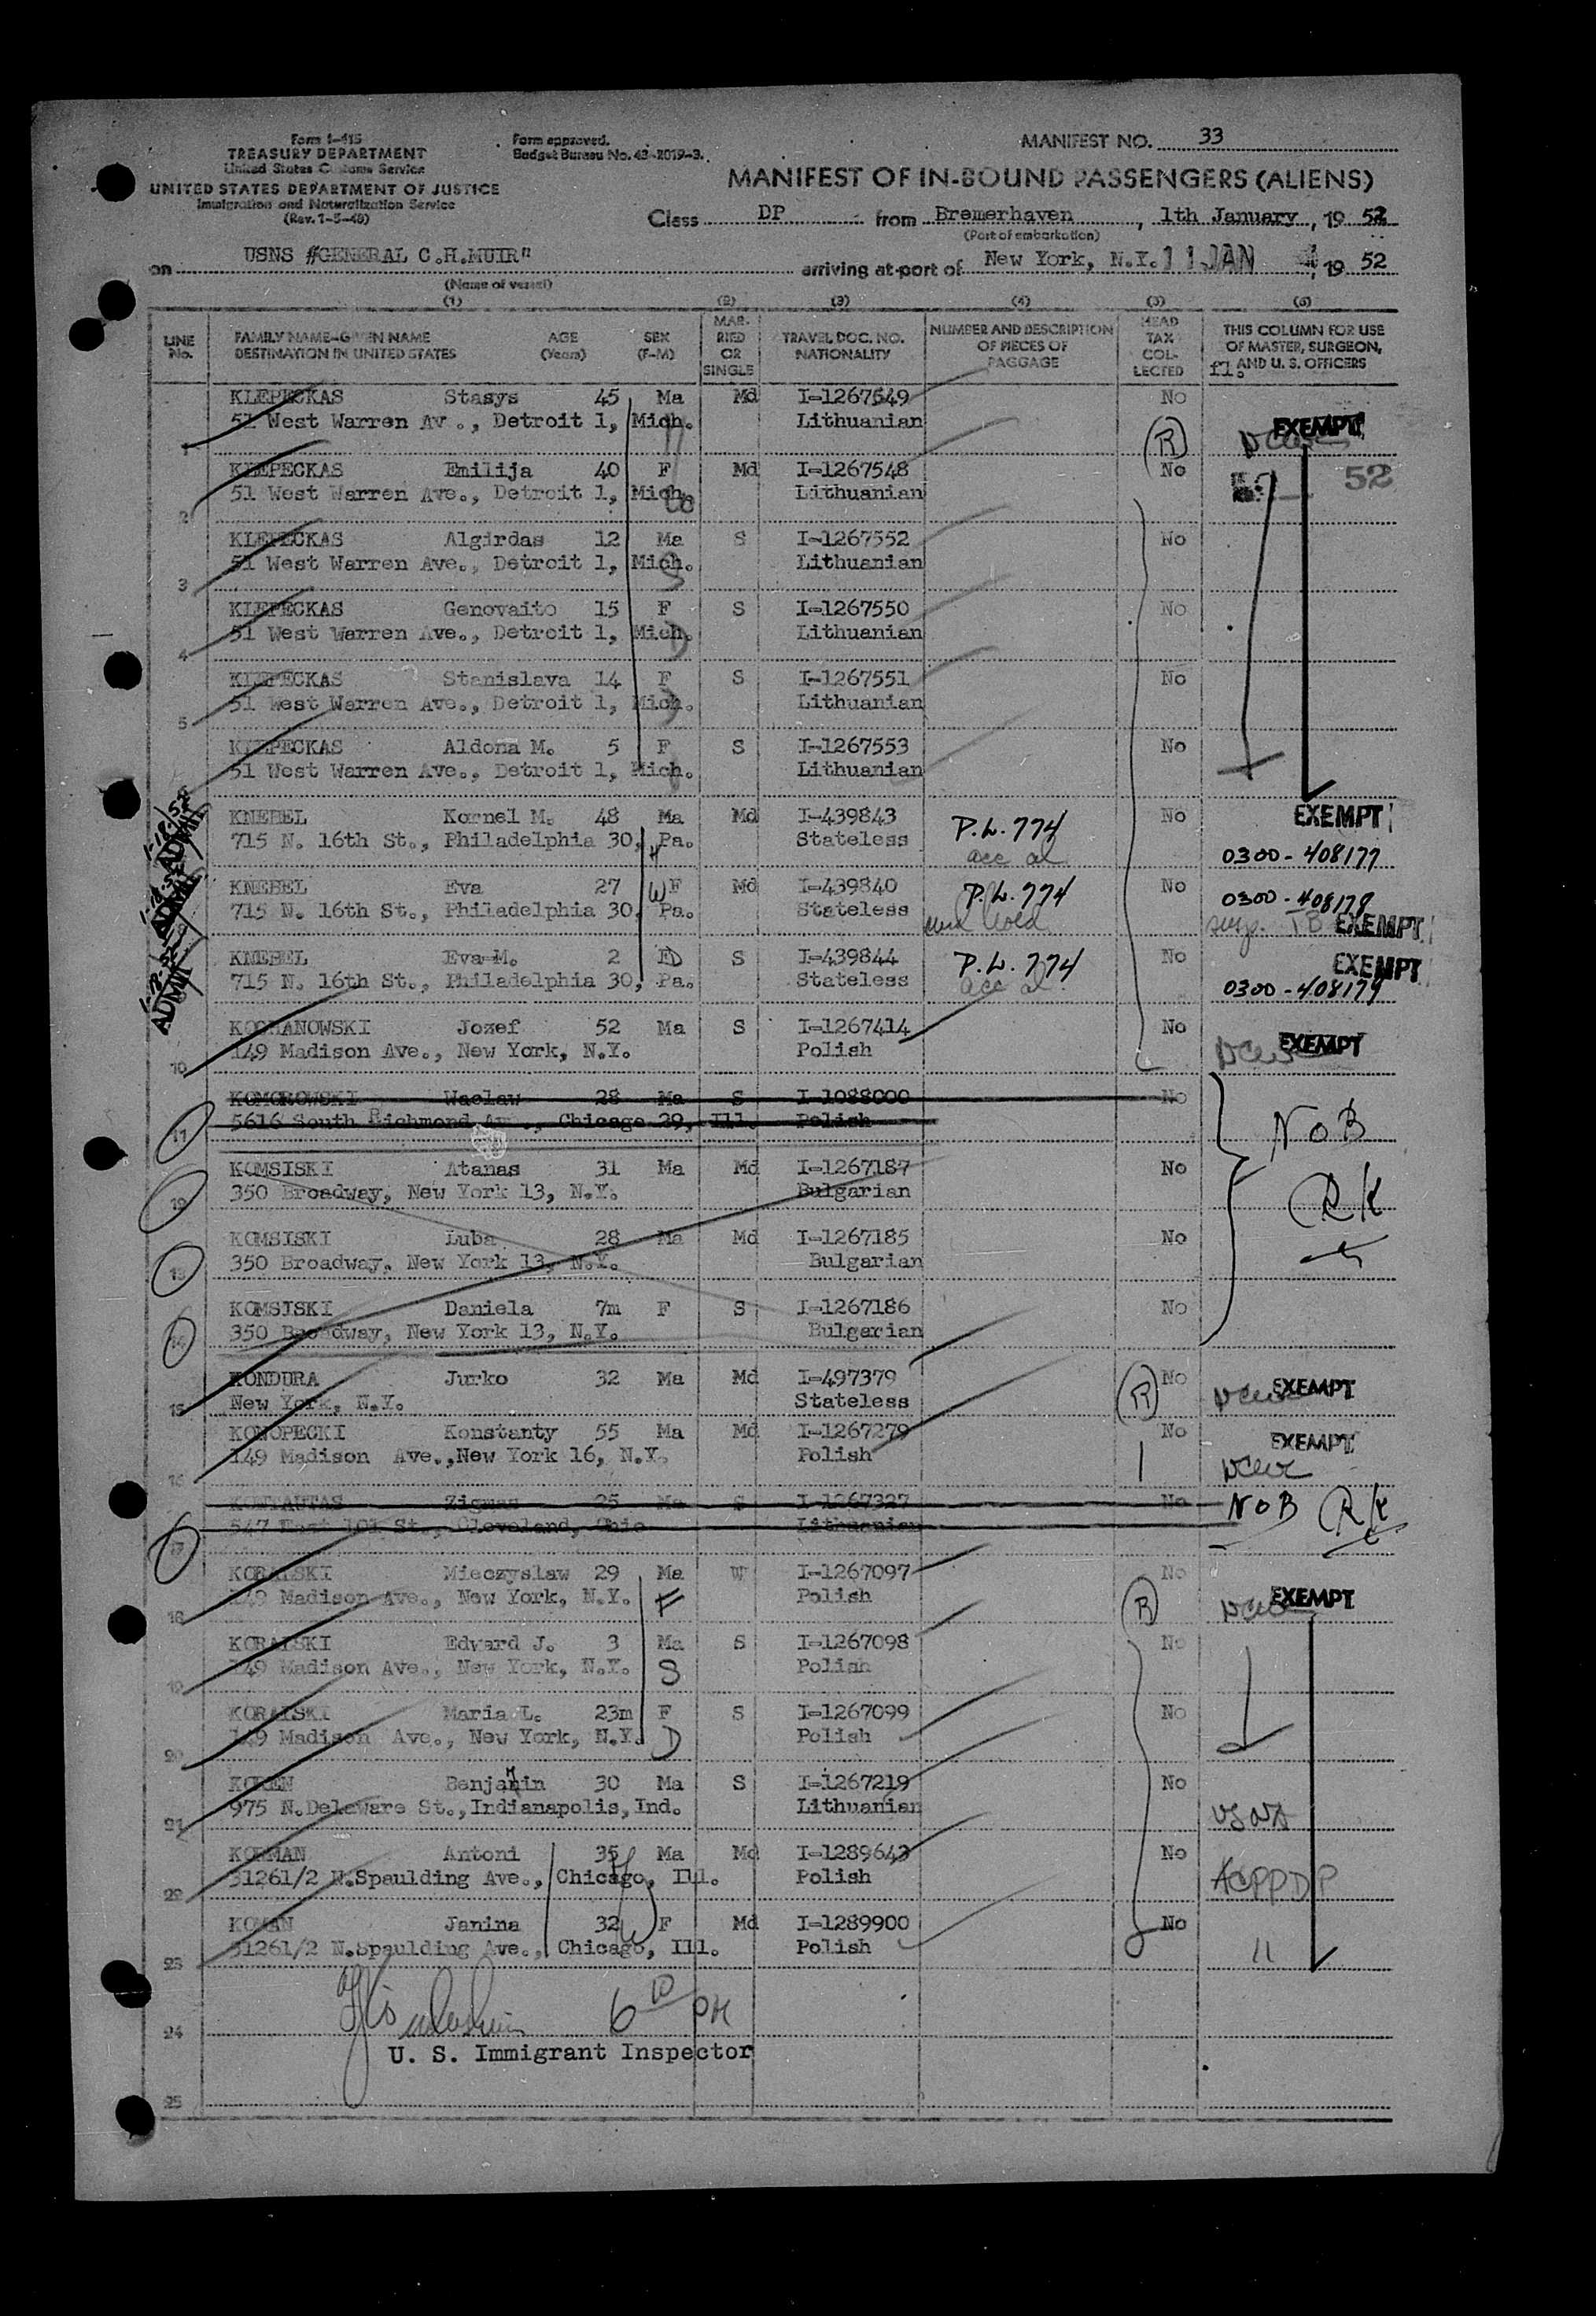 Form I-415
TREASURY DEPARTMENT
United States Customs Service
UNITED STATES DEPARTMENT OF JUSTICE
Immigration and Naturalization Service
(Rev. 1-5-48)
Form approved.
Budget Bureau No. 43-R019-3.
MANIFEST NO. 33
MANIFEST OF IN-BOUND PASSENGERS (ALIENS)
Class DP from Bremerhaven, 1th January, 19 52
(Port of embarkation)
on USNS "GENERAL C.H.MUIR" arriving at port of New York, N.Y. 11 JAN, 19 52
(Name of vessel)
(1) (2) (3) (4) (5) (6)
LINE No. FAMILY NAME-GIVEN NAME DESTINATION IN UNITED STATES AGE (Years) SEX (F-M) MARRIED OR SINGLE TRAVEL DOC. NO. NATIONALITY NUMBER AND DESCRIPTION OF PIECES OF BAGGAGE HEAD TAX COLLECTED THIS COLUMN FOR USE OF MASTER, SURGEON, AND U. S. OFFICERS
KLEPECKAS Stasys 45 Ma Md I-1267549 No
1 51 West Warren Av ., Detroit 1, Mich. Lithuanian R EXEMPT
KLEPECKAS Emilija 40 F Md I-1267548 No 52
2 51 West Warren Ave., Detroit 1, Mich. Lithuanian
KLEPECKAS Algirdas 12 Ma S I-1267552 No
3 51 West Warren Ave., Detroit 1, Mich. Lithuanian
KLEPECKAS Genovaito 15 F S I-1267550 No
4 51 West Warren Ave., Detroit 1, Mich. Lithuanian
KLEPECKAS Stanislava 14 F S I-1267551 No
5 51 West Warren Ave., Detroit 1, Mich. Lithuanian
KLEPECKAS Aldona M. 5 F S I-1267553 No
51 West Warren Ave., Detroit 1, Mich. Lithuanian
KNEBEL Kornel M. 48 Ma Md I-439843 P.L. 774 No EXEMPT
715 N. 16th St., Philadelphia 30, Pa. Stateless 0300-408177
KNEBEL Eva 27 W F Md I-439840 P.L. 774 No 0300-408178
715 N. 16th St., Philadelphia 30, Pa. Stateless TB EXEMPT
KNEBEL Eva M. 2 F D S I-439844 P.L. 774 No EXEMPT
715 N. 16th St., Philadelphia 30, Pa. Stateless 0300-408179
KOCHANOWSKI Jozef 52 Ma S I-1267414 No
10 149 Madison Ave., New York, N.Y. Polish EXEMPT
KOMOROWSKI Waclaw 28 Ma S I-1088000 No
11 5616 South Richmond Av ., Chicago 29, Ill. Polish NOB
KOMSISKI Atanas 31 Ma Md I-1267187 No
12 350 Broadway, New York 13, N.Y. Bulgarian RK
KOMSISKI Luba 28 Ma Md I-1267185 No
13 350 Broadway, New York 13, N.Y. Bulgarian
KOMSISKI Daniela 7m F S I-1267186 No
14 350 Broadway, New York 13, N.Y. Bulgarian
KONDURA Jurko 32 Ma Md I-497379 No
15 New York, N.Y. Stateless R EXEMPT
KONOPECKI Konstanty 55 Ma Md I-1267279 No EXEMPT
16 149 Madison Ave.,New York 16, N.Y. Polish
KONTAUTAS Zigmas 25 Ma S I-1267327 No NOB RK
17 547 East 101 St., Cleveland, Ohio Lithuanian
KORALSKI Mieczyslaw 29 Ma W I-1267097 No
18 149 Madison Ave., New York, N.Y. F Polish R EXEMPT
KORALSKI Edward J. 3 Ma S I-1267098 No
19 149 Madison Ave., New York, N.Y. S Polish
KORALSKI Maria L. 23m F S I-1267099 No
20 149 Madison Ave., New York, N.Y. D Polish
KOREN Benjamin 30 Ma S I-1267219 No
21 975 N.Delaware St.,Indianapolis,Ind. Lithuanian
KORMAN Antoni 35 Ma Md I-1289643 No
22 31261/2 N.Spaulding Ave., Chicago, Ill. Polish ACPPDP
KOMAN Janina 32 F Md I-1289900 No
23 31261/2 N.Spaulding Ave., Chicago, Ill. Polish "
6 10 PM
24
U. S. Immigrant Inspector
25